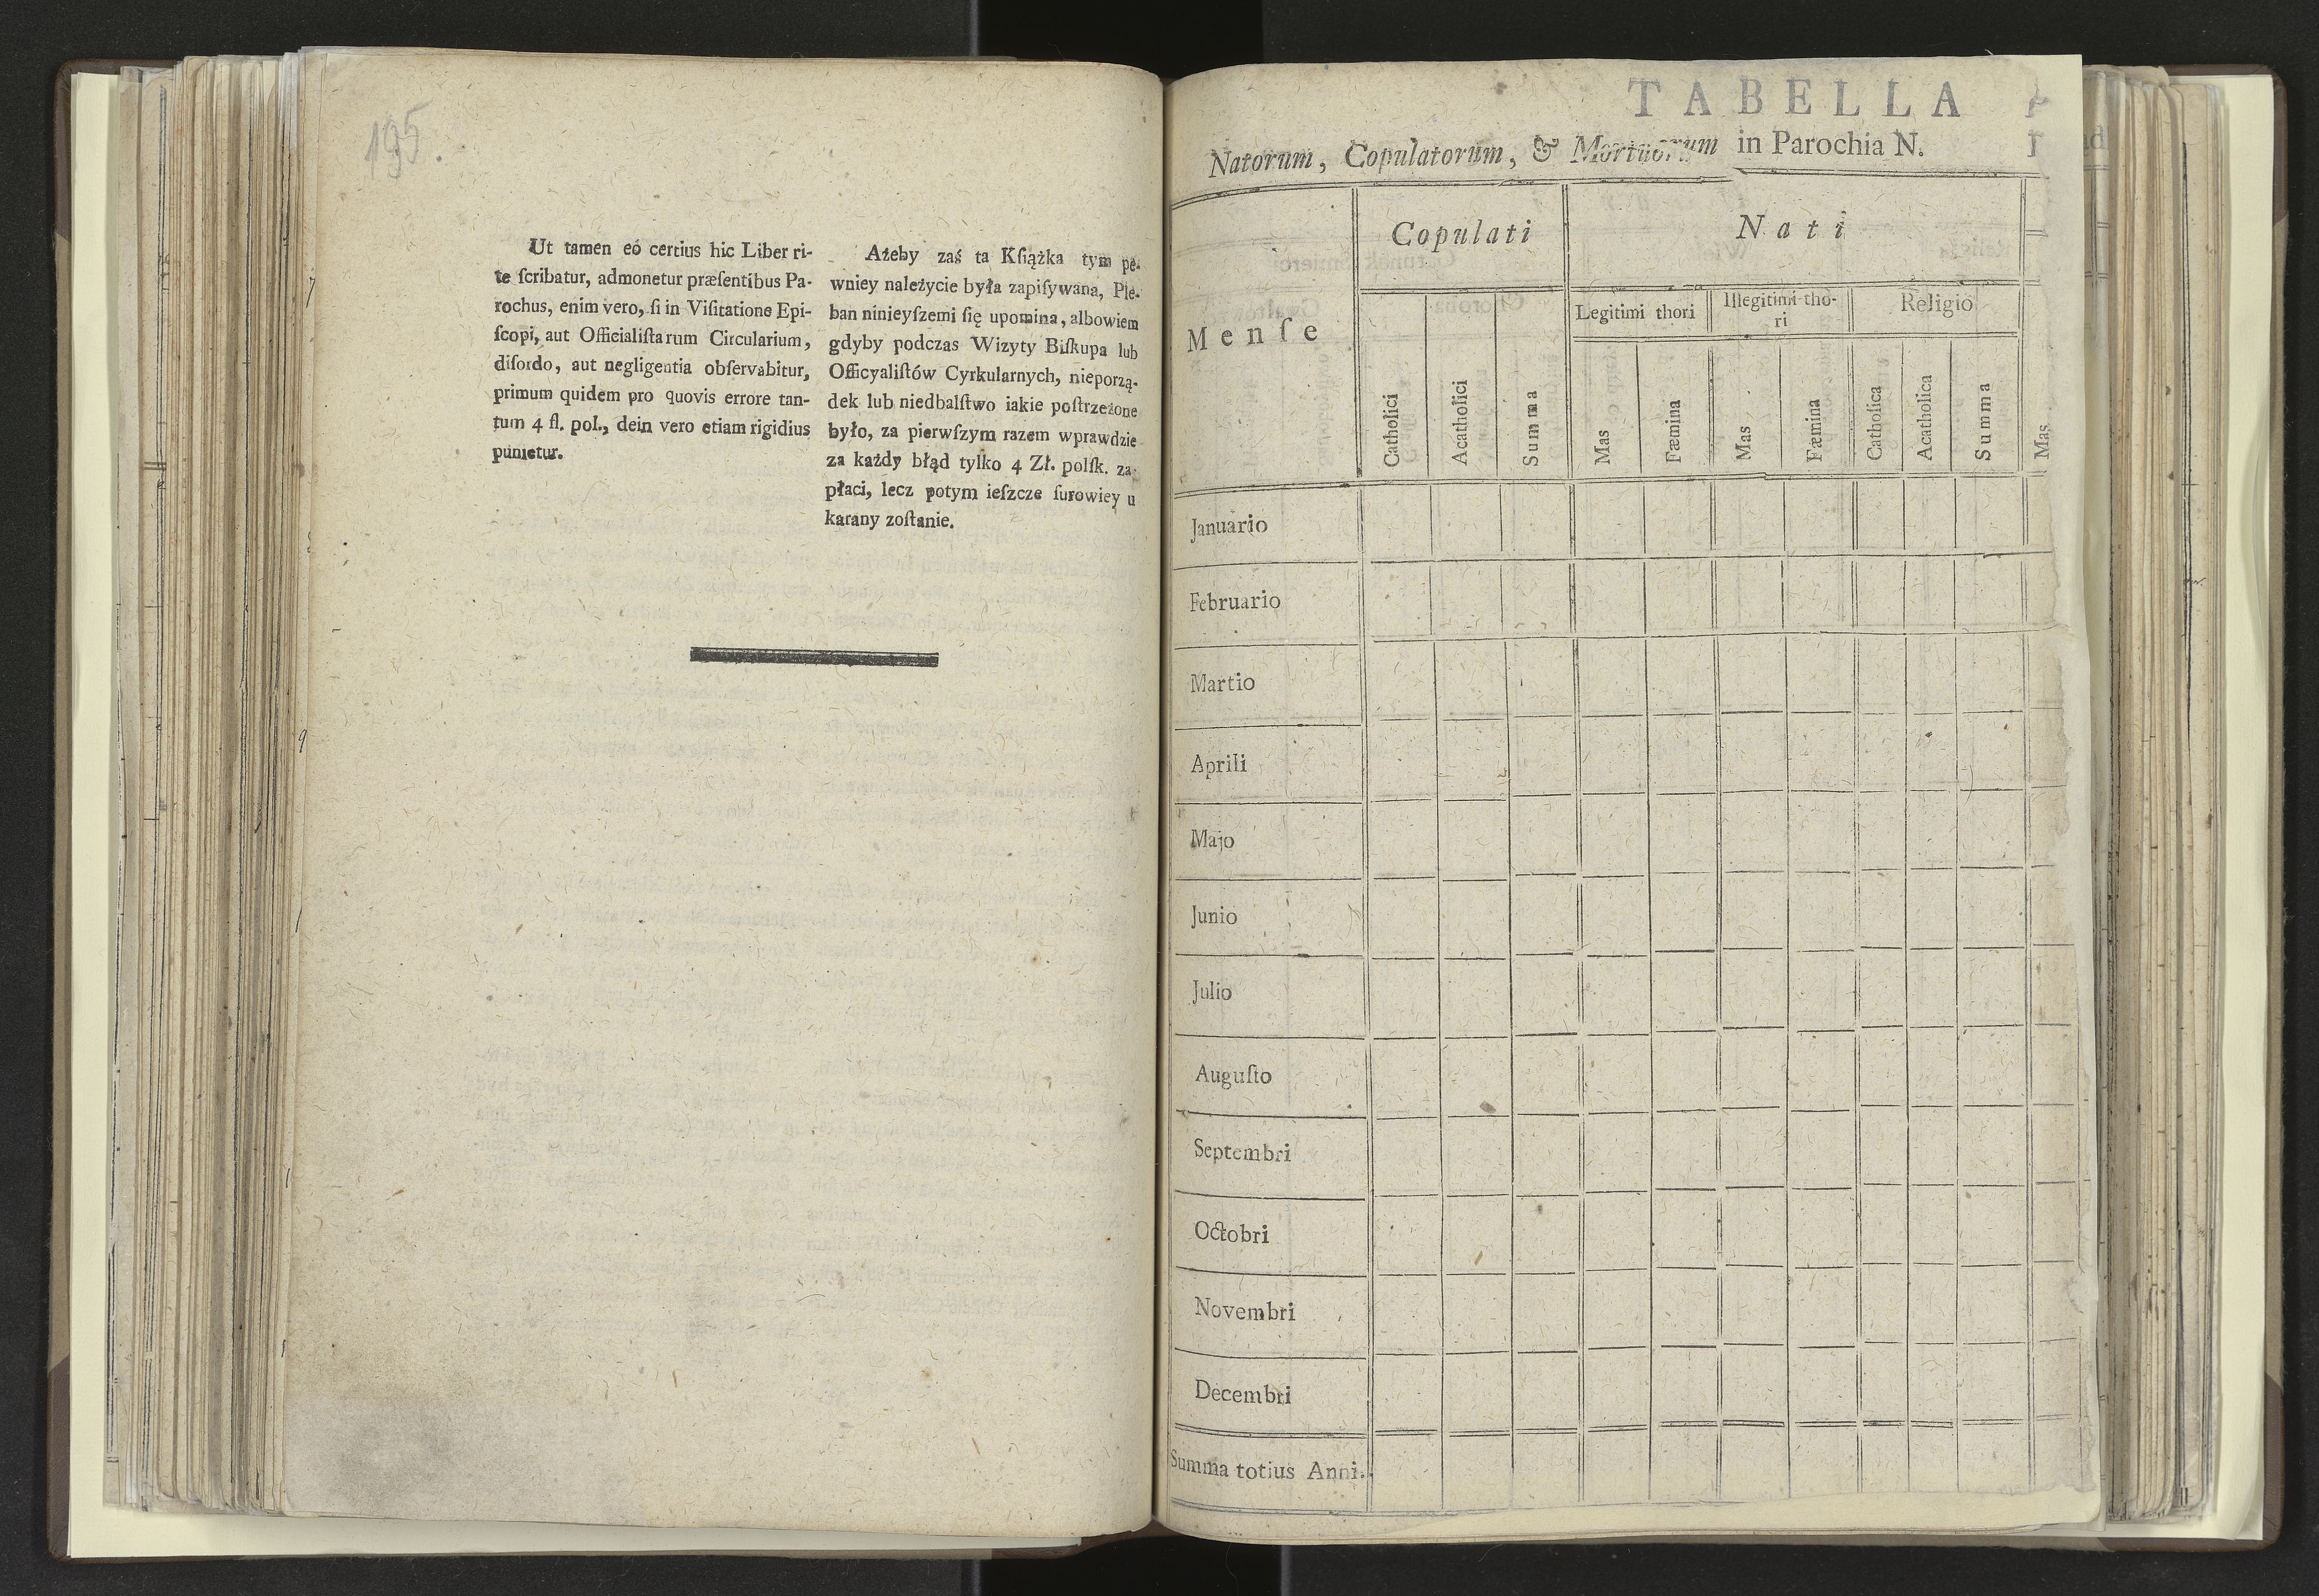 195.
Ut tamen eó certius hic Liber ri-
te ſcribatur, admonetur præſentibus Pa-
rochus, enim vero, ſi in Viſitatione Epi-
ſcopi, aut Officialiſtarum Circularium,
diſordo, aut negligentia obſervabitur,
primum quidem pro quovis errore tan-
tum 4 fl. pol., dein vero etiam rigidius
punietur.
Ażeby zaś ta Kſiążka tym pe-
wniey należycie była zapiſywana, Ple-
ban ninieyſzemi ſię upomina, albowiem
gdyby podczas Wizyty Biſkupa lub
Officyaliſtów Cyrkularnych, nieporzą-
dek lub niedbalſtwo iakie poſtrzeżone
było, za pierwſzym razem wprawdzie
za każdy błąd tylko 4 Zł. polſk. za-
płaci, lecz potym ieſzcze ſurowiey u
karany zoſtanie.
TABELLA
Natorum, Copulatorum, & Mortuorum in Parochia N.
Menſe
Copulati
Nati
Legitimi thori
Illegitimi tho-
ri
Religio
Catholici
Acatholici
Summa
Mas
Fæmina
Mas
Fæmina
Catholica
Acatholica
Summa
Mas
Januario
Februario
Martio
Aprili
Majo
Junio
Julio
Auguſto
Septembri
Octobri
Novembri
Decembri
Summa totius Anni.